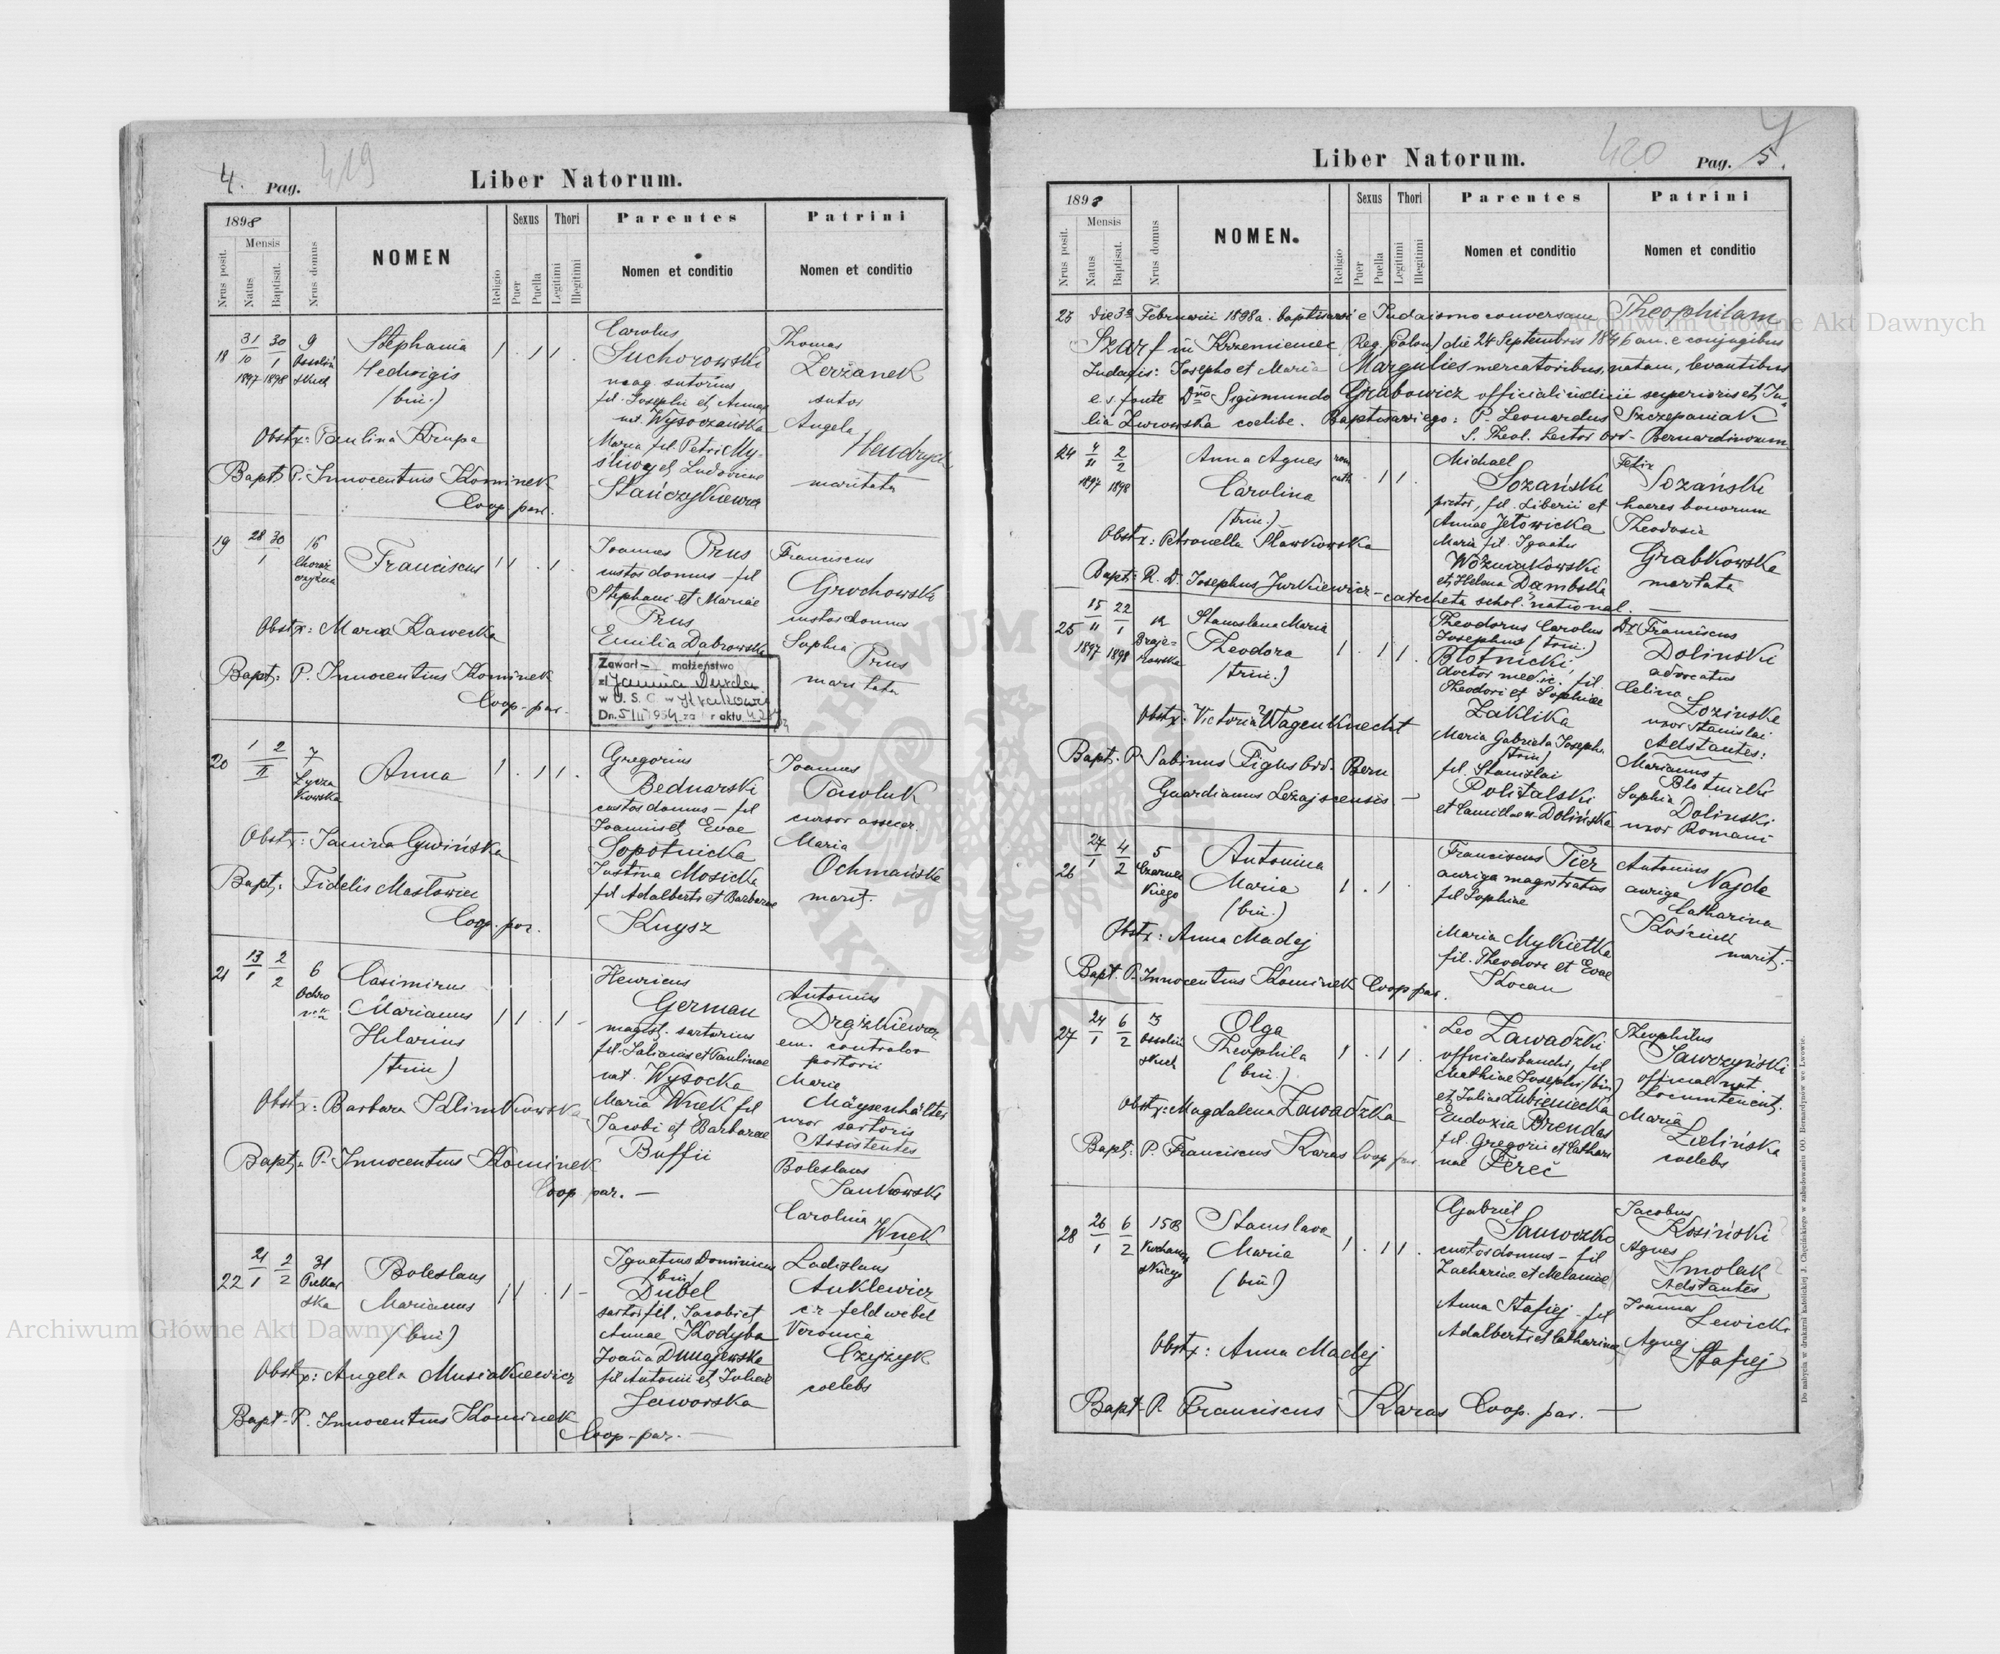 4. Pag. 419
Liber Natorum.
1898
Nrus posit.
Mensis
Natus
Baptisat.
Nrus domus
NOMEN
Religio
Sexus
Puer
Puella
Thori
Legitimi
Illegitimi
Parentes
Nomen et conditio
Patrini
Nomen et conditio
18
31/10 1897
30/1 1898
9
Stephania
Hedwigis
(bin.)
1 . 1 1 .
Carolus
Suchorowski
mag. sutorius
fil. Josephi et Annae
nat. Wysoczańska
Maria fil. Petri My-
śliwej et Ludovicae
Stańczykiewicz
Thomas
Zerżanek
sutor
Angela
Hendrych
maritata
Obstx: Paulina Krupa
Bapt: P. Innocentius Kominek
Coop. par.
19
28 30
1
16
Chorąż
czyzna
Franciscus
1 1 . 1 .
Joannes Prus
custos domus - fil
Stephani et Mariae
Prus
Emilia Dabrowska
Franciscus
Grochowski
custos domus
Sophia
Prus
maritata
Obstx: Maria Kawecka
Bapt: P. Innocentius Kominek
Coop. par.
Zawarł - małżeństwo
w U. S. C w Krakowie
20
1 2
II
7
Łycza
kowska
Anna
1 . 1 1 .
Gregorius
Bednarski
custos domus - fil
Joannis et Evae
Sopotnicka
Justina Mosicka
fil Adalberti et Barbarae
Knysz
Joannes
Pawluk
cursor assecur.
Maria
Ochmańska
marit.
Obstx: Janina Gwińska
Bapt: Fidelis Masłowiec
Coop. par.
21
13/1 2/2
6
Ochro
nek
Casimirus
Marianus
Hilarius
(trin)
1 1 . 1 -
Henricus
German
magist. sartorius
fil. Juliani et Paulinae
nat. Wysocka
Maria Wnęk fil
Jacobi et Barbarae
Buffii
Antonius
Drążkiewicz
em. controlor
portorii
Maria
Mäysenhälter
uxor sartoris
Assistentes
Boleslaus
Jankowski
Carolina
Wnęk
Obstx: Barbara Klimkowska
Bapt: P. Innocentius Kominek
Coop par. -
22
21/1 2/2
31
Piekar
ska
Boleslaus
Marianus
(bin)
1 1 . 1 -
Ignatius Dominicus
(bin)
Dubel
sartor fil. Jacobi et
Annae Kodyba
Joanna Dunajewska
fil Antonii et Juliae
Jaworska
Ladislaus
Auklewicz
c. r. feldwebel
Veronica
Czyżyk
coelebs
Obstx: Angela Musiałkiewicz
Bapt. P. Innocentius Kominek
Coop. par. -
420 Pag. 5.
Liber Natorum.
1898
Nrus posit.
Mensis
Natus
Baptisat.
Nrus domus
NOMEN.
Religio
Sexus
Puer
Puella
Thori
Legitimi
Illegitimi
Parentes
Nomen et conditio
Patrini
Nomen et conditio
23 die 3a Februarii 1898 a. baptisavi e Judaismo conversam Theophilam
Szarf in Krzemieniec (Reg. Polon.) die 24 Septembris 1846 an. e conjugibus
Judaeis: Josepho et Maria Margulies mercatoribus, natam, levantibus
e. s. fonte Dno Sigismundo Grabowicz officiali iudicii superioris et Ju-
lia Lwowska coelibe. Baptisavi ego: P. Leonardus Szczepaniak
S. Theol. Lector Ord. Bernardinorum
24
4/11 1897
2/2 1898
Anna Agnes
Carolina
(trin.)
rom
cath.
. 1 1 .
Michael
Sozański
pictor, fil. Liberii et
Annae Jełowicka
Maria fil. Ignatii
Wozniakowski
et Helena Dąmbska
Felix
Sozański
haeres bonorum
Theodosia
Grabkowska
maritata
Obstx: Petronella Sławkowska
Bapt: R. D. Josephus Jurkiewicz - catecheta schol. national. -
25
15/11 1897
22/1 1898
Braje-
rowska
Stanislaua Maria
Theodora
(trin.)
1 . 1 1 .
Theodorus Carolus
Josephus (trin.)
Błotnicki
doctor medic. fil
Theodori et Sophiae
Zaklika
Maria Gabriela Joseph.
(trin)
fil. Stanislai
Politalski
et Camillae n. Dolińska
Dr Franciscus
Dolinski
advocatus
Celina
Łozinska
uxor Stanislai
Adstantes:
Marianus
Błotnicki
Sophia
Dolinski
uxor Romani
Obstx: Victoria Wagenknecht
Bapt. P. Sabinus Figus Ord. Bern
Guardianus Leżajscensis -
26
27/1 4/2
5
Czarnec
kiego
Antonina
Maria
(bin.)
1 . 1 .
Franciscus Tier
auriga magistratus
fil Sophiae
Maria Mykietka
fil. Theodori et Evae
Kocan
Antonius
Najde
auriga
Catharina
Kościuk
marit. -
Obstx: Anna Madej
Bapt. P. Innocentius Kominek Coop par.
27
24/1 6/2
3
Ossoliń
skich
Olga
Theophila
(bin.)
1 . 1 1 .
Leo Zawadzki
officialis banchi, fil
Mathiae Josephi (bin)
et Julia Lubieniecka
Eudoxia Brendas
fil. Gregorii et Cathari
nae Fereč
Theophilus
Sawczyński
official. vet.
Locumtenent.
Maria
Zielińska
coelebs
Obstx: Magdalena Zawadzka
Bapt: P. Franciscus Karas Coop par.
28
26/1 6/2
15B
Kochanow
skiego
Stanislava
Maria
(bin)
1 . 1 1 .
Gabriel
Sawoczko
custos domus - fil
Zachariae et Melaniae
Anna Stafiej - fil
Adalberti et Catharinae
Jacobus
Kosiński
Agnes
Smolak
Adstantes
Joannes
Lewicki
Agnes
Stafiej
Obstx: Anna Madej
Bapt. P. Franciscus Karas Coop. par. -
Do nabycia w drukarni katolickiej J. Chęcińskiego w zabudowaniu OO. Bernardynów we Lwowie.
Archiwum Główne Akt Dawnych
Archiwum Główne Akt Dawnych
ARCHIWUM GŁÓWNE AKT DAWNYCH